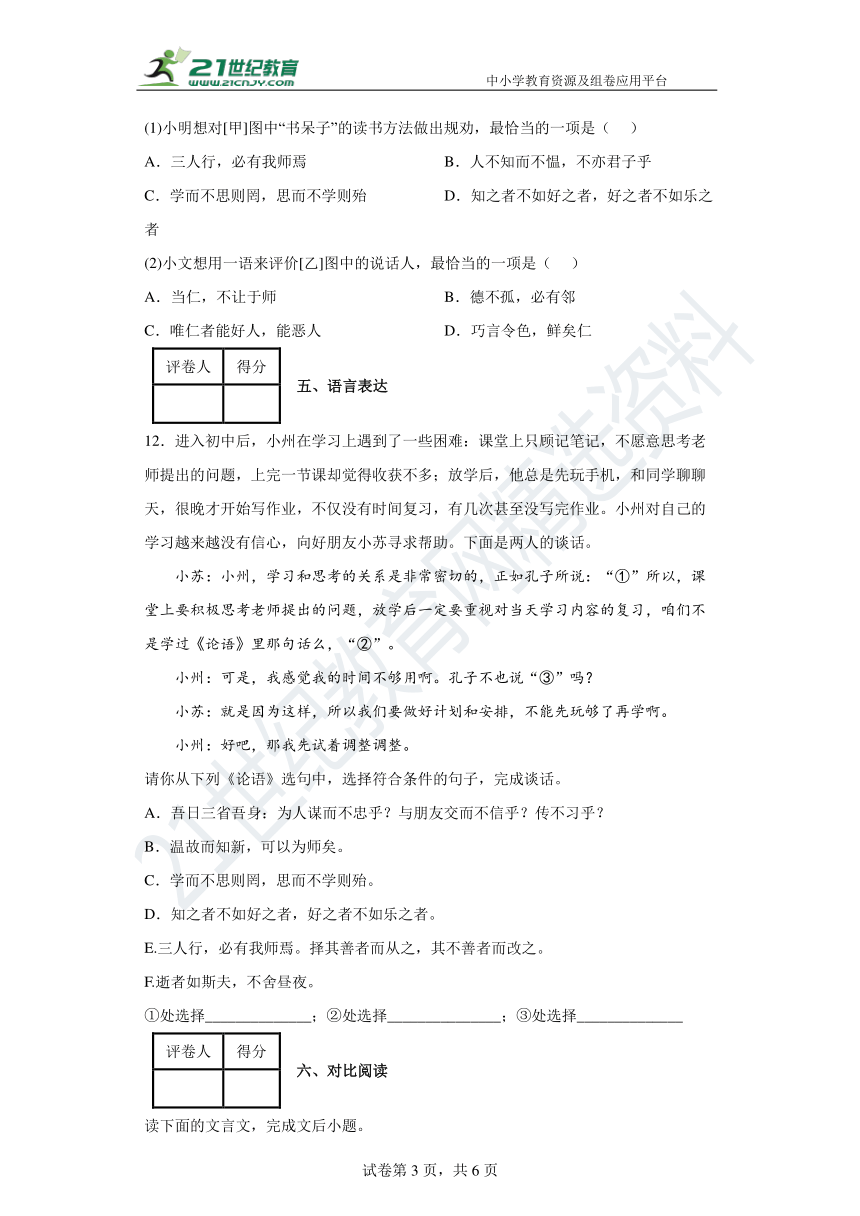 21世纪教育
WWW.21CNJY.COM
中小学教育资源及组卷应用平台
(1)小明想对[甲]图中“书呆子”的读书方法做出规劝，最恰当的一项是（ ）
A．三人行，必有我师焉 B．人不知而不愠，不亦君子乎
C．学而不思则罔，思而不学则殆 D．知之者不如好之者，好之者不如乐之
者
(2)小文想用一语来评价[乙]图中的说话人，最恰当的一项是（ ）
A．当仁，不让于师 B．德不孤，必有邻
C．唯仁者能好人，能恶人 D．巧言令色，鲜矣仁
评卷人 得分
五、语言表达
12．进入初中后，小州在学习上遇到了一些困难：课堂上只顾记笔记，不愿意思考老
师提出的问题，上完一节课却觉得收获不多；放学后，他总是先玩手机，和同学聊聊
天，很晚才开始写作业，不仅没有时间复习，有几次甚至没写完作业。小州对自己的
学习越来越没有信心，向好朋友小苏寻求帮助。下面是两人的谈话。
小苏：小州，学习和思考的关系是非常密切的，正如孔子所说：“①”所以，课
堂上要积极思考老师提出的问题，放学后一定要重视对当天学习内容的复习，咱们不
是学过《论语》里那句话么，“②”。
小州：可是，我感觉我的时间不够用啊。孔子不也说“③”吗？
小苏：就是因为这样，所以我们要做好计划和安排，不能先玩够了再学啊。
小州：好吧，那我先试着调整调整。
请你从下列《论语》选句中，选择符合条件的句子，完成谈话。
A．吾日三省吾身：为人谋而不忠乎？与朋友交而不信乎？传不习乎？
B．温故而知新，可以为师矣。
C．学而不思则罔，思而不学则殆。
D．知之者不如好之者，好之者不如乐之者。
E.三人行，必有我师焉。择其善者而从之，其不善者而改之。
F.逝者如斯夫，不舍昼夜。
①处选择______________；②处选择_______________；③处选择______________
评卷人 得分
六、对比阅读
读下面的文言文，完成文后小题。
试卷第 3 页，共 6 页
21世纪教育网精选资料